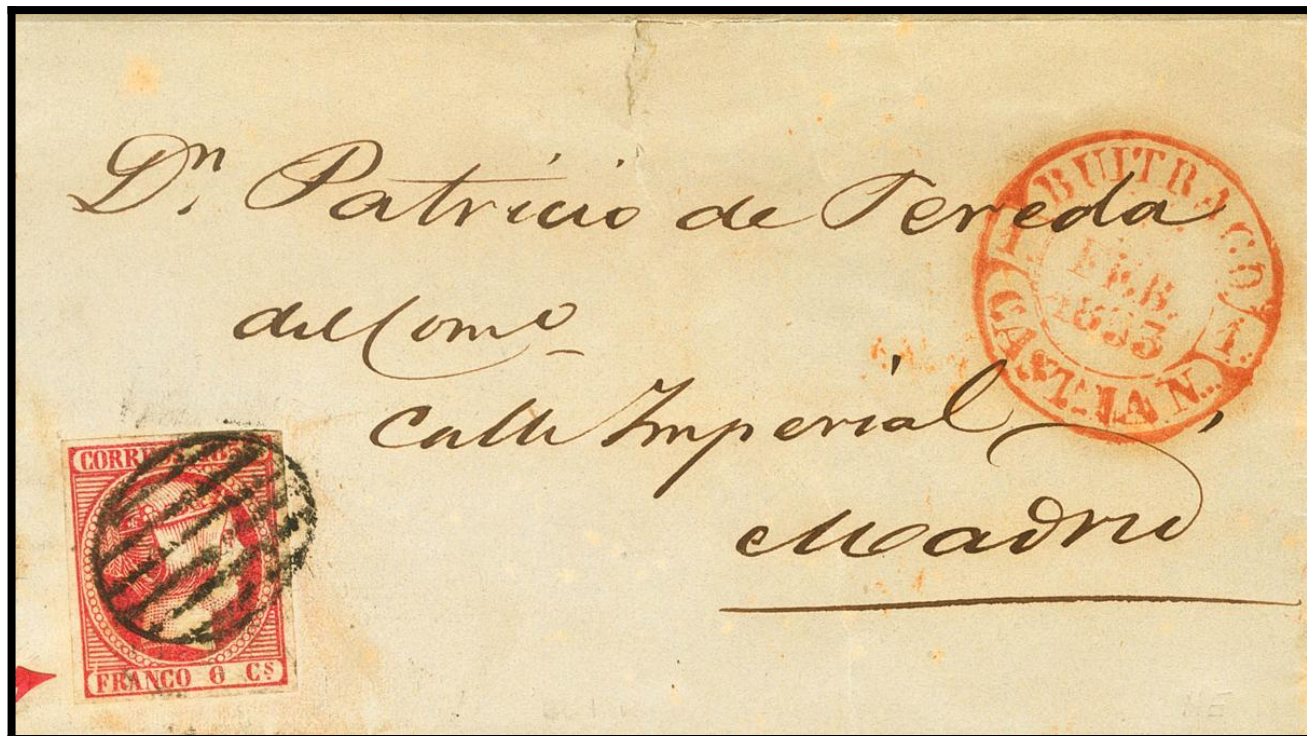 Dn. Patricio de Pereda
del Como
Calle Imperial,
Madrid
BUITRAGO
1
FEB.
1853
CAST. LA N.
1
CORREOS 185
FRANCO 6 Cs